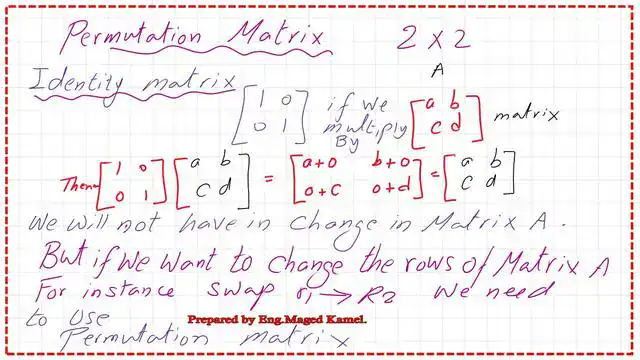 Permutation Matrix 2 x 2
Identity matrix A
[1 0 0 1] if we multiply By [a b c d] matrix
Then [1 0 0 1] [a b c d] = [a+0 b+0 0+c 0+d] = [a b c d]
We will not have in change in Matrix A.
But if We Want to change the rows of Matrix A
For instance swap r1 → R2 We need
to use Prepared by Eng.Maged Kamel.
Permutation matrix